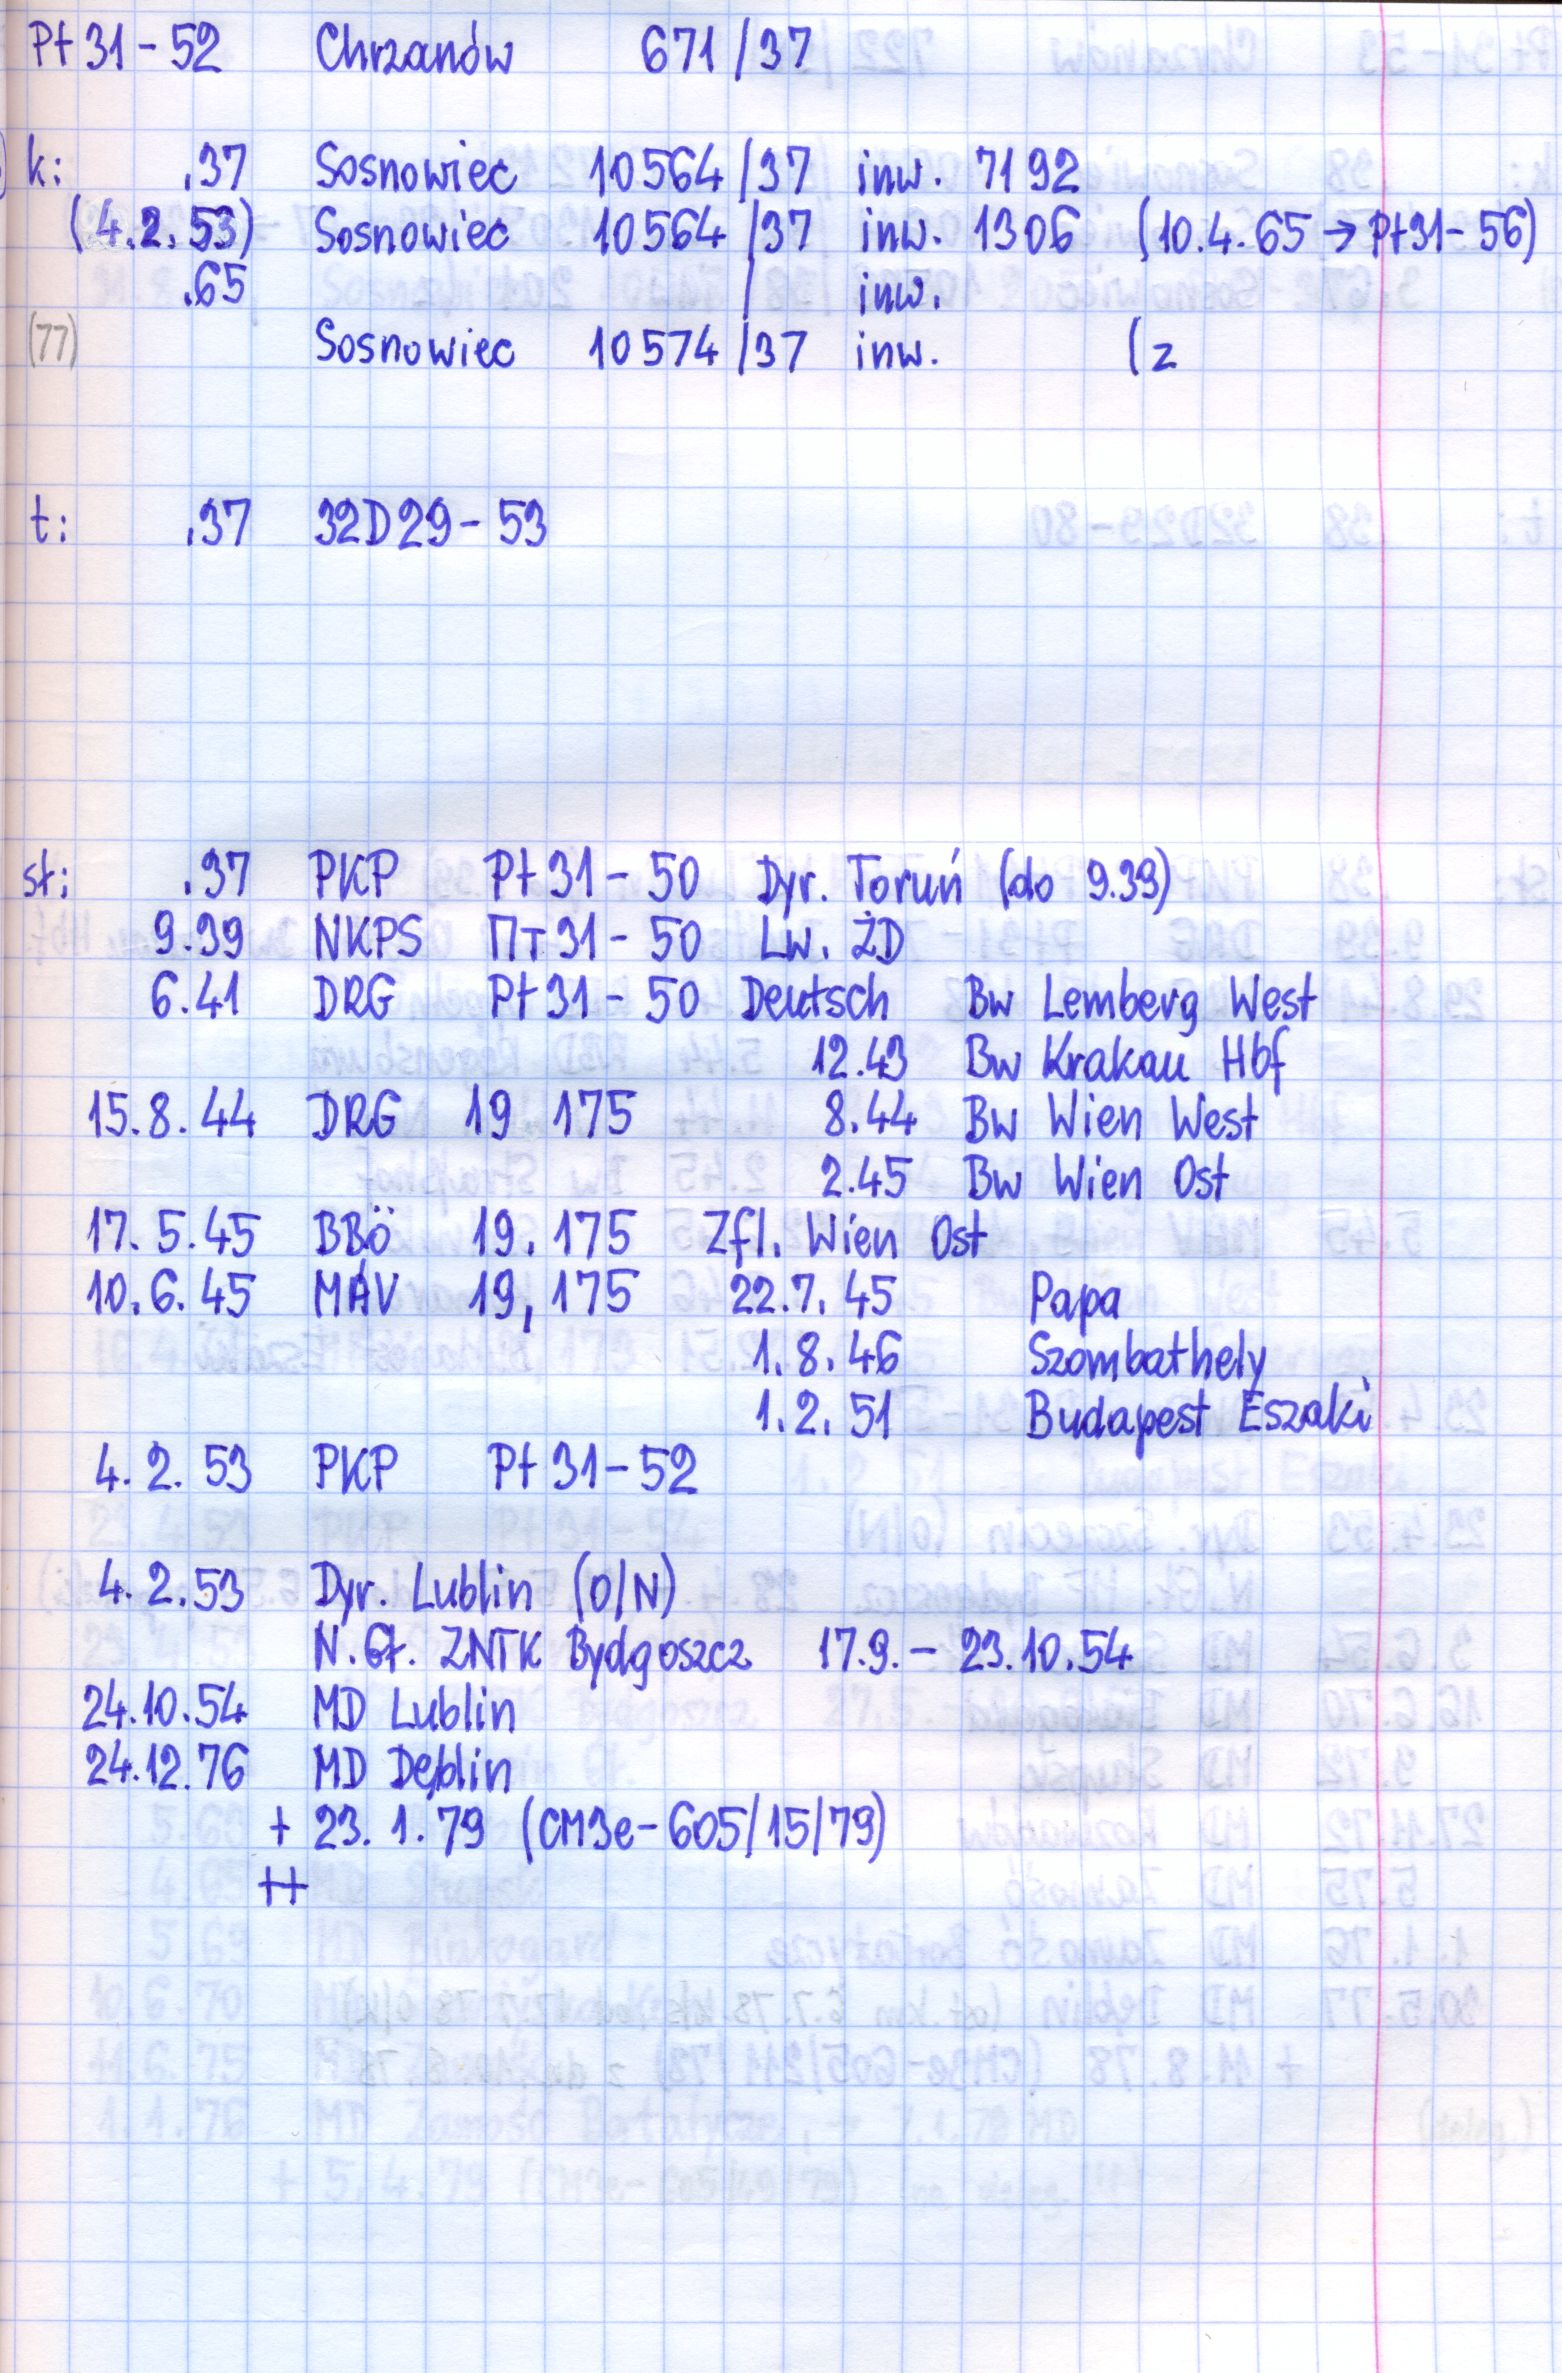 Pt 31 - 52 Chrzanów 671 / 37
k: .37 Sosnowiec 10564 / 37 inw. 7192
(4.2.53) Sosnowiec 10564 / 37 inw. 1306 (10.4.65 → Pt31-56)
.65 / inw.
(77) Sosnowiec 10574 / 37 inw. (z
t: .37 32D29 - 53
st: .37 PKP Pt 31 - 50 Dyr. Toruń (do 9.39)
9.39 NKPS Пт 31 - 50 Lw. ŻD
6.41 DRG Pt 31 - 50 Deutsch Bw Lemberg West
12.43 Bw Krakau Hbf
15.8.44 DRG 19 175 8.44 Bw Wien West
2.45 Bw Wien Ost
17.5.45 BBÖ 19.175 Zfl. Wien Ost
10.6.45 MÁV 19,175 22.7.45 Papa
1.8.46 Szombathely
1.2.51 Budapest Eszaki
4.2.53 PKP Pt 31-52
4.2.53 Dyr. Lublin (O/N)
N.Gł. ZNTK Bydgoszcz 17.9. - 23.10.54
24.10.54 MD Lublin
24.12.76 MD Dęblin
+ 23.1.79 (CM3e-605/15/79)
++